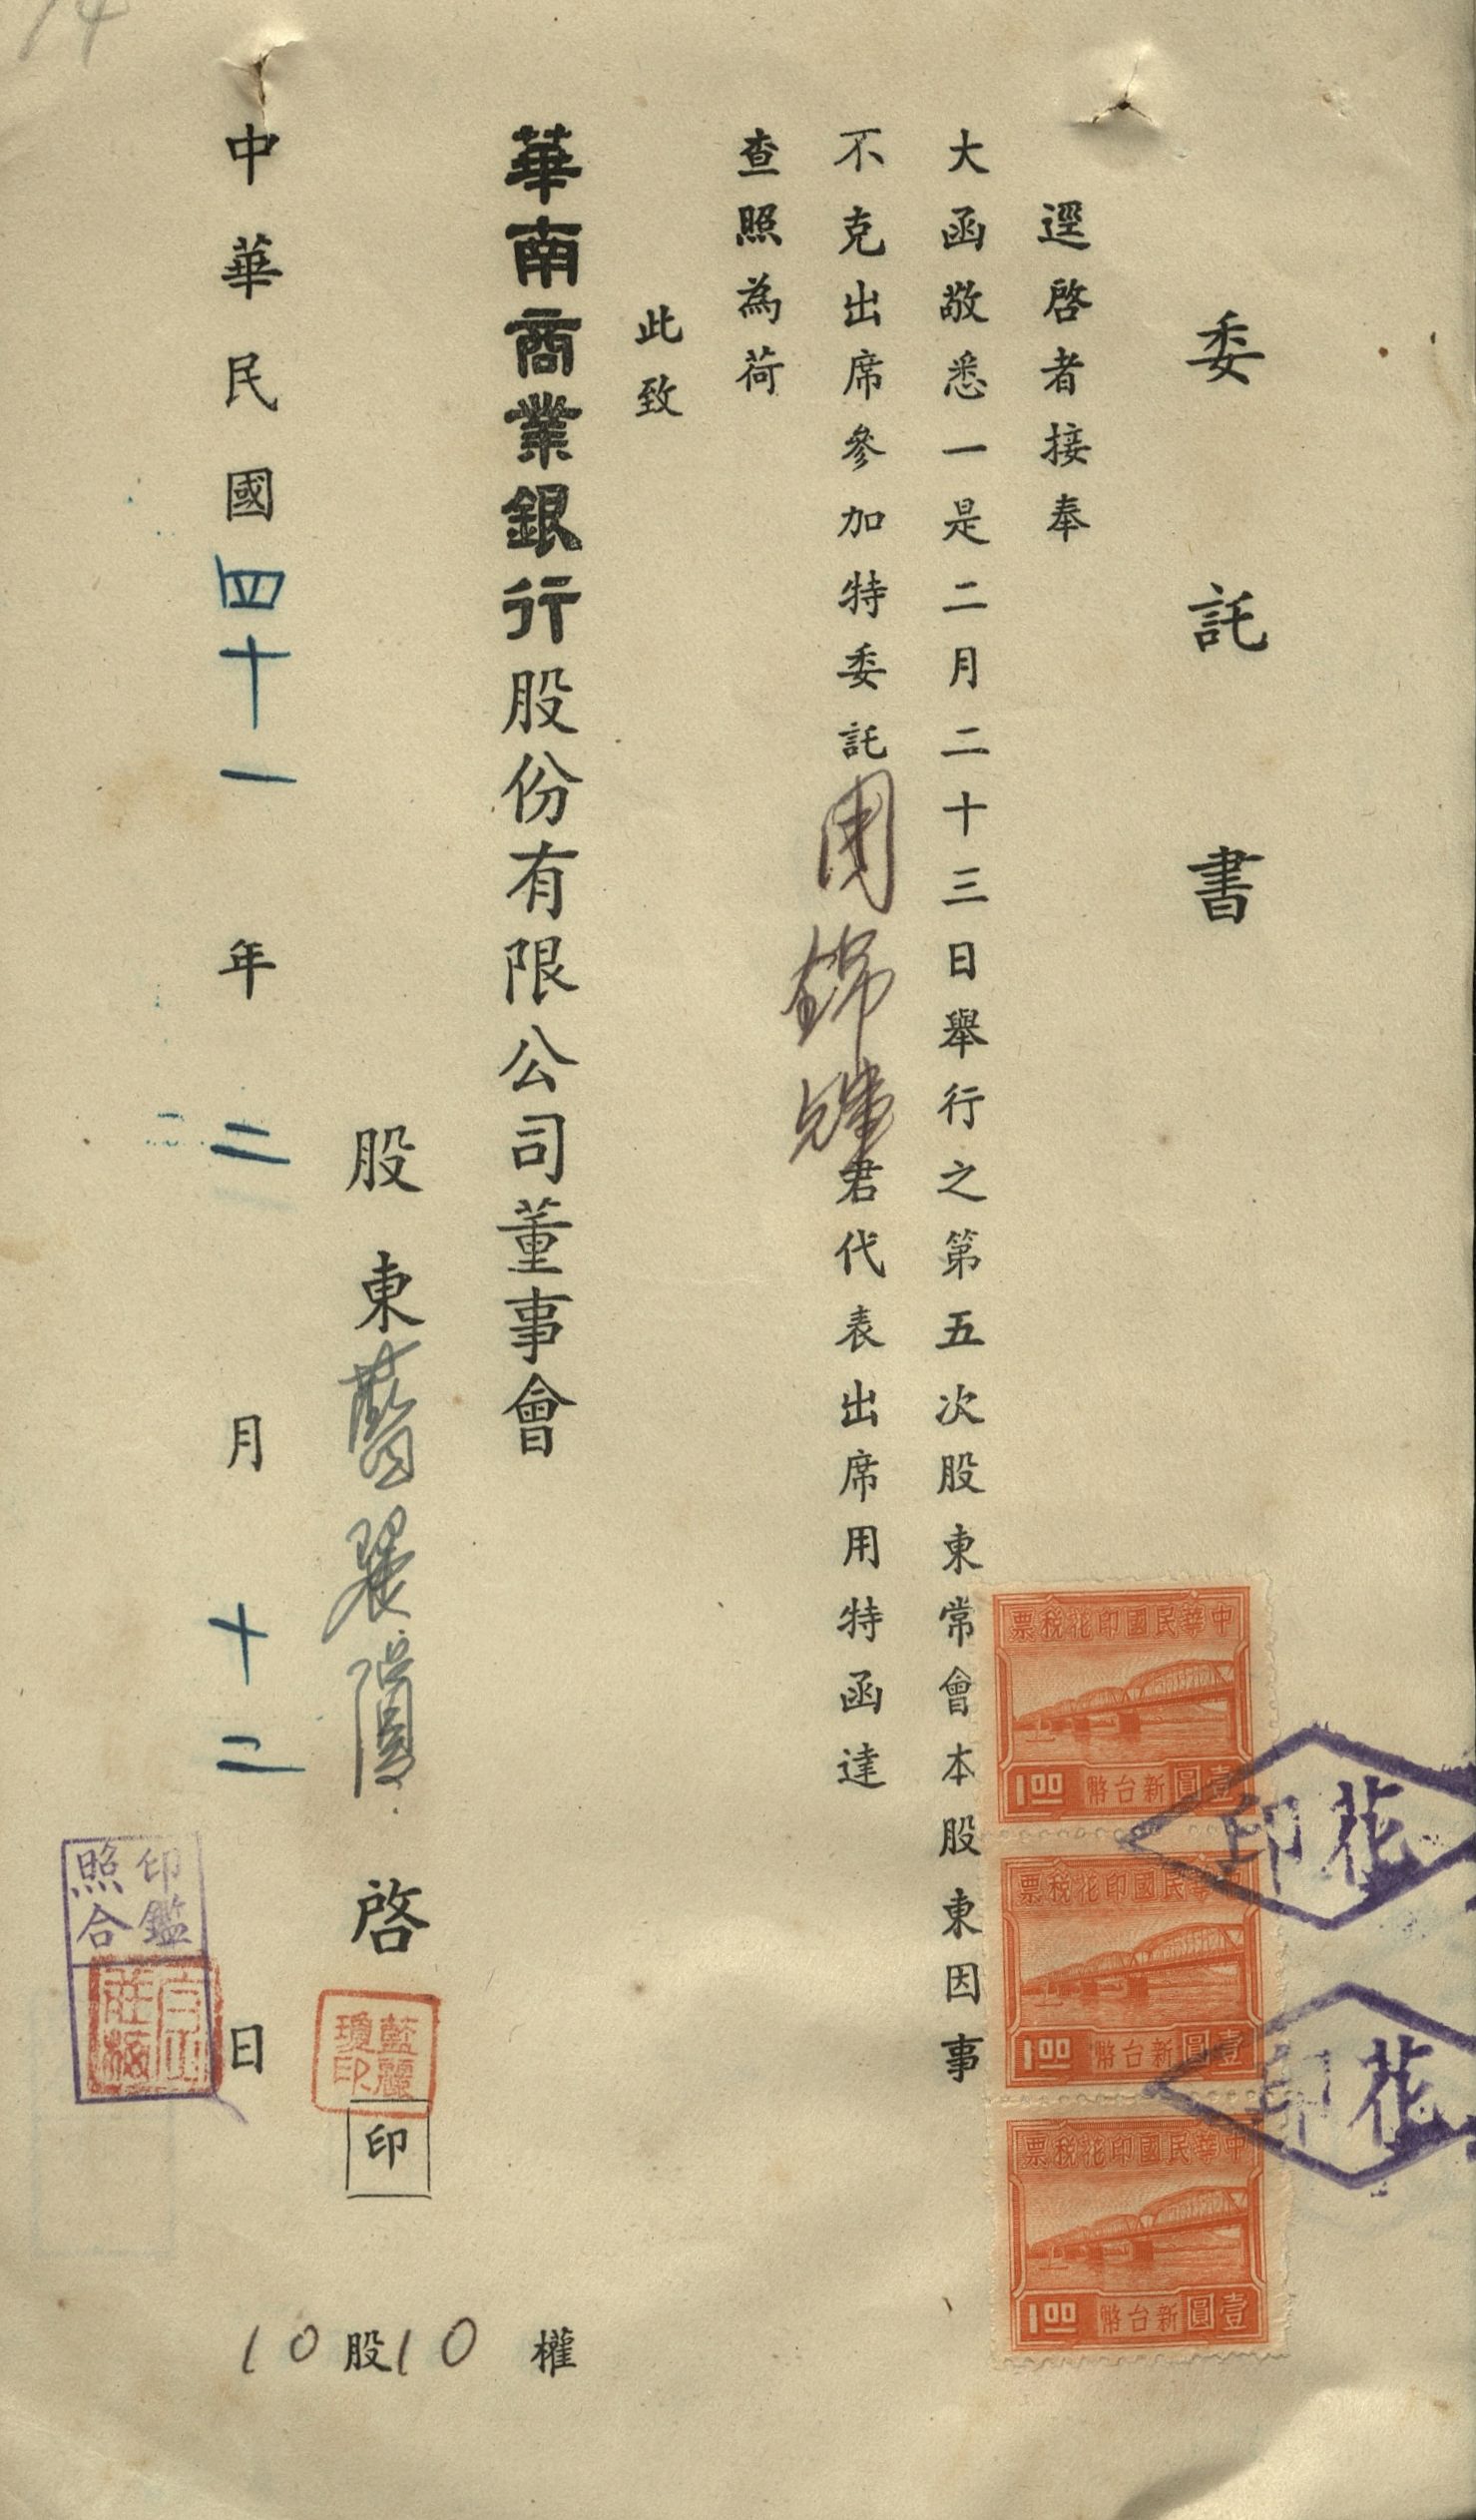 委託書
逕啓者接奉
大函敬悉一是二月二十三日舉行之第五次股東常會本股東因事
不克出席參加特委託周錦君代表出席用特函達
查照為荷
此致
華南商業銀行股份有限公司董事會
股東藍麗瓊啓
藍麗瓊印
印
中華民國四十一年二月十二日
印鑑照合
10股10權
中華民國印花稅票
壹圓新台幣
1.00
中華民國印花稅票
壹圓新台幣
1.00
中華民國印花稅票
壹圓新台幣
1.00
印花
印花